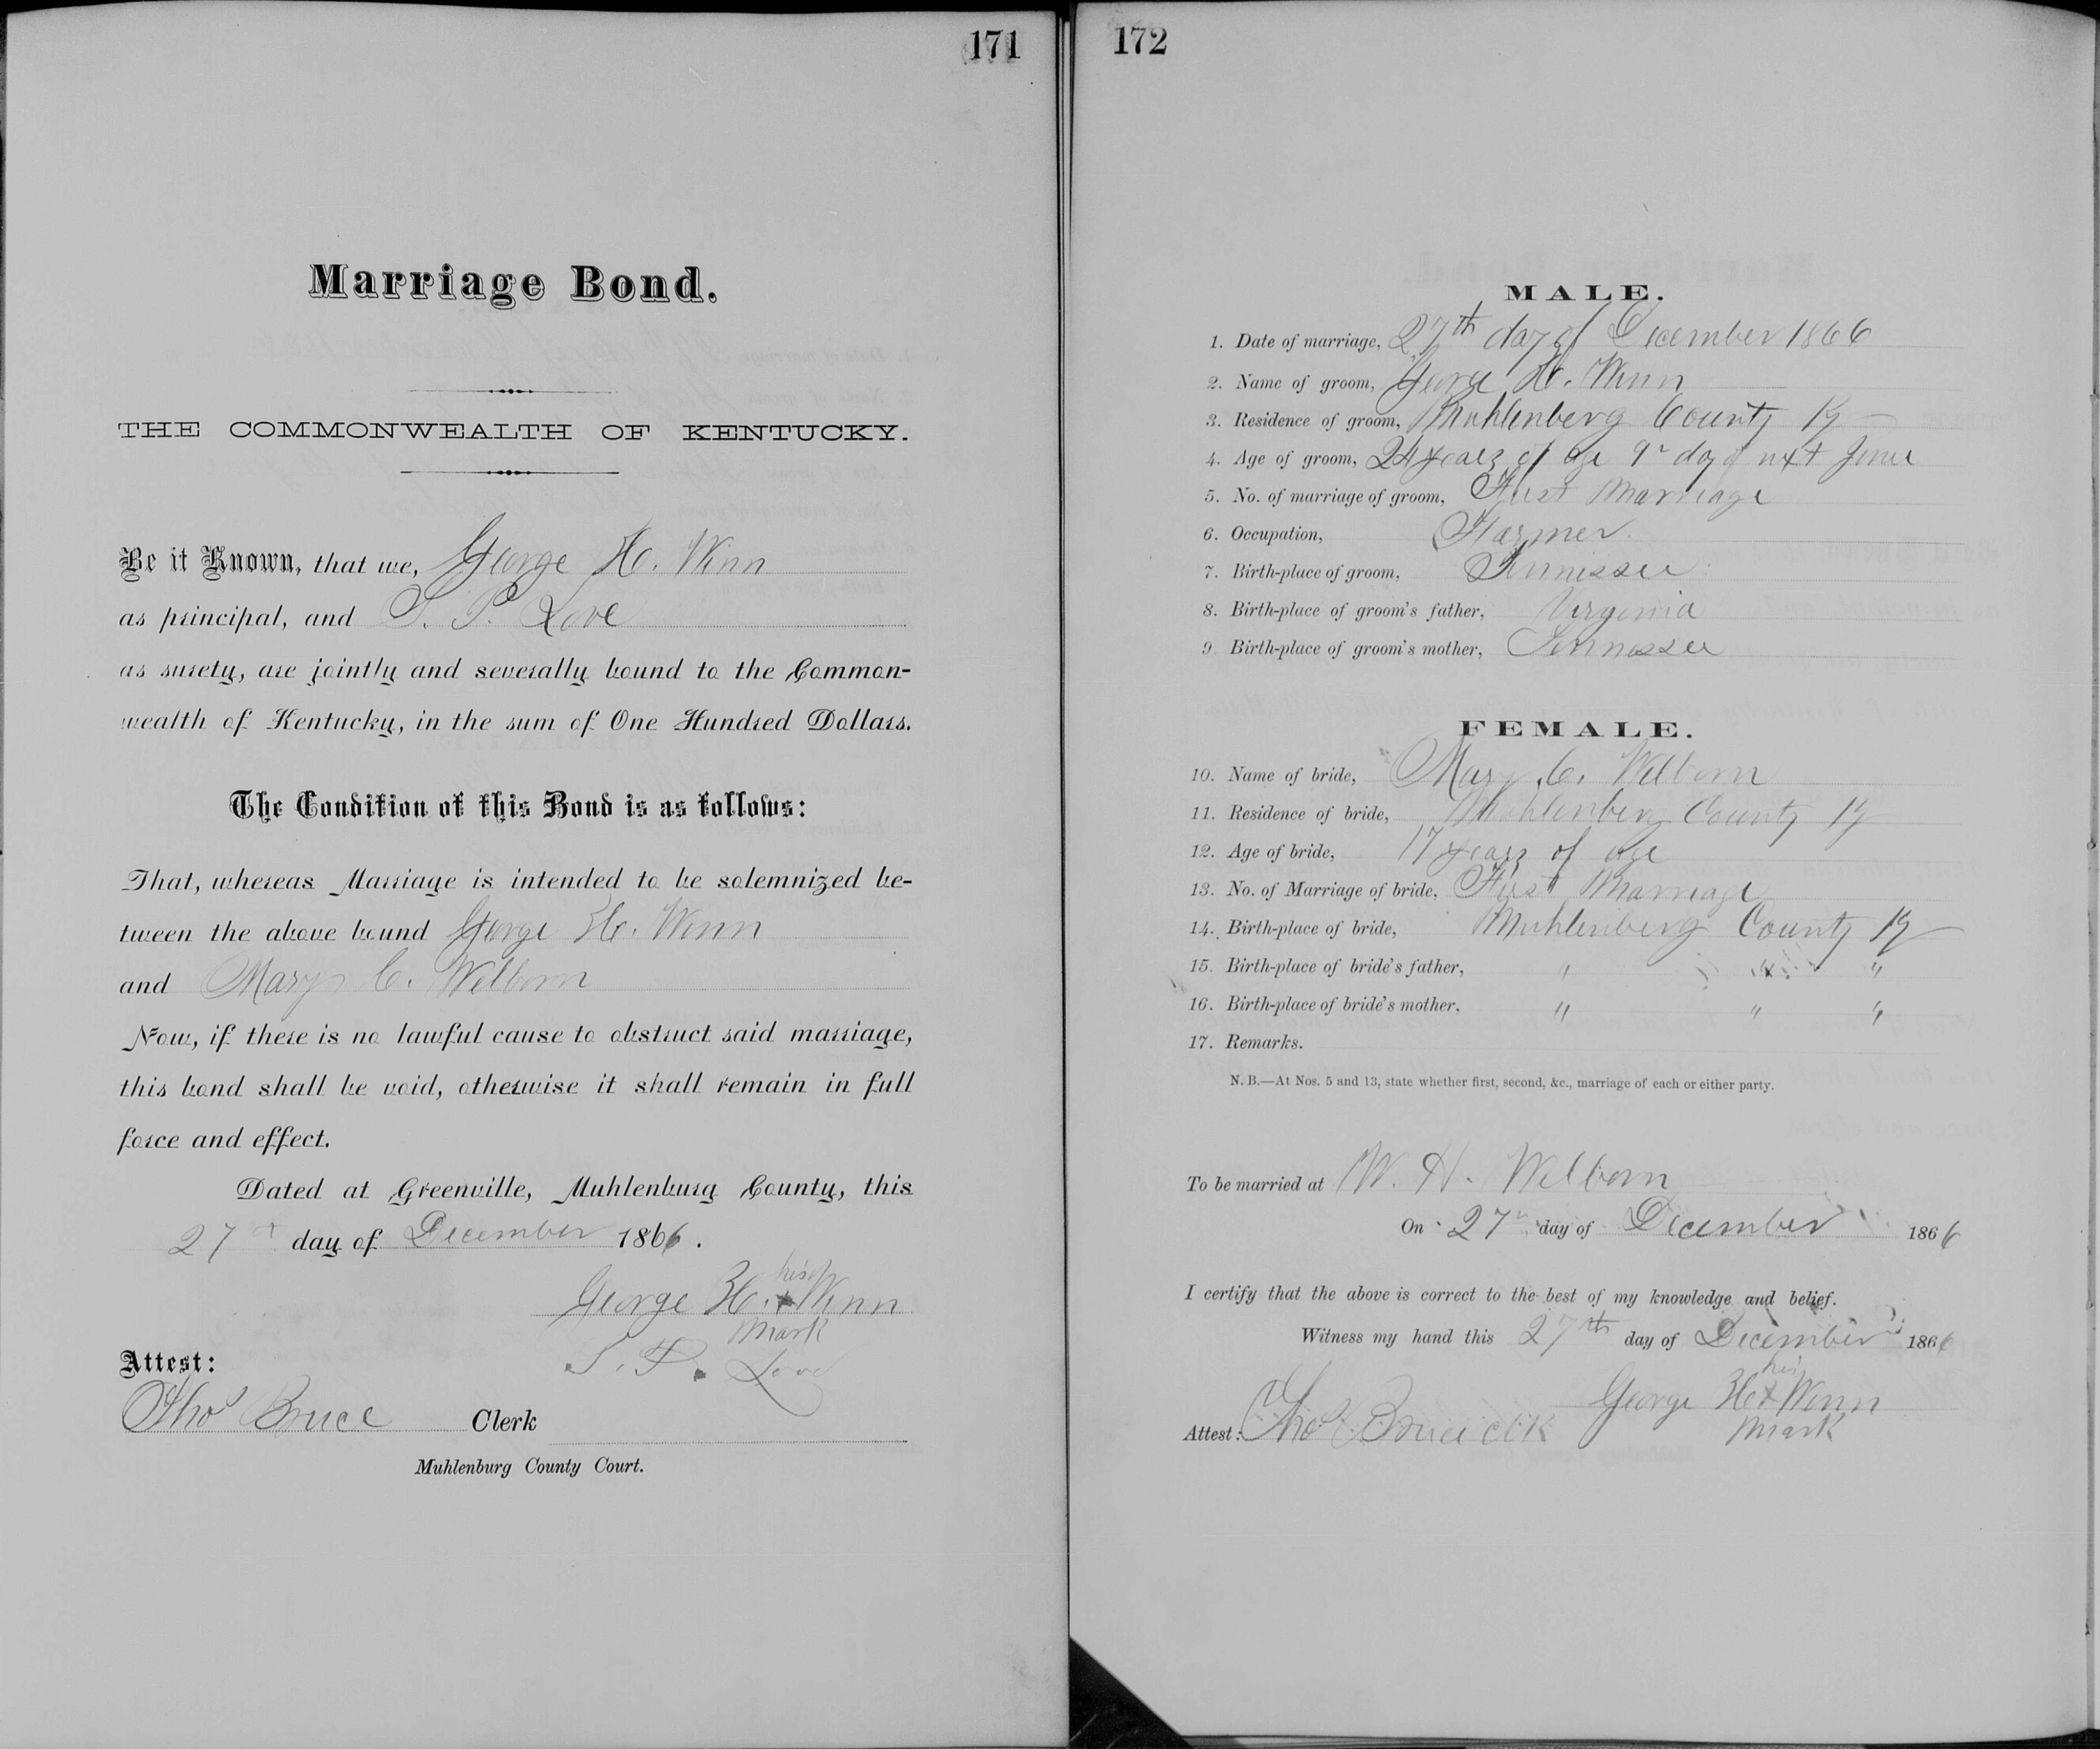 171
Marriage Bond.
THE COMMONWEALTH OF KENTUCKY.
Be it Known, that we, George H. Winn
as principal, and S. P. Love
as surety, are jointly and severally bound to the Common-
wealth of Kentucky, in the sum of One Hundred Dollars.
The Condition of this Bond is as follows:
That, whereas Marriage is intended to be solemnized be-
tween the above bound George H. Winn
and Mary C. Welborn
Now, if there is no lawful cause to obstruct said marriage,
this bond shall be void, otherwise it shall remain in full
force and effect.
Dated at Greenville, Muhlenburg County, this
27 day of December 1866.
his
George H. x Winn
mark
S. P. Love
Attest:
Thos Bruce Clerk
Muhlenburg County Court.
172
MALE.
1. Date of marriage, 27th day of December 1866
2. Name of groom, George H. Winn
3. Residence of groom, Muhlenberg County Ky
4. Age of groom, 24 years of age 9 day of next June
5. No. of marriage of groom, First Marriage
6. Occupation, Farmer
7. Birth-place of groom, Tennessee
8. Birth-place of groom's father, Virginia
9. Birth-place of groom's mother, Tennessee
FEMALE.
10. Name of bride, Mary C. Welborn
11. Residence of bride, Muhlenberg County Ky
12. Age of bride, 17 years of age
13. No. of Marriage of bride, First Marriage
14. Birth-place of bride, Muhlenberg County Ky
15. Birth-place of bride's father, " " "
16. Birth-place of bride's mother, " " "
17. Remarks.
N. B.—At Nos. 5 and 13, state whether first, second, &c., marriage of each or either party.
To be married at W. H. Welborn
On 27 day of December 1866
I certify that the above is correct to the best of my knowledge and belief.
Witness my hand this 27th day of December 1866
his
George H x Winn
mark
Attest: Thos Bruce clk